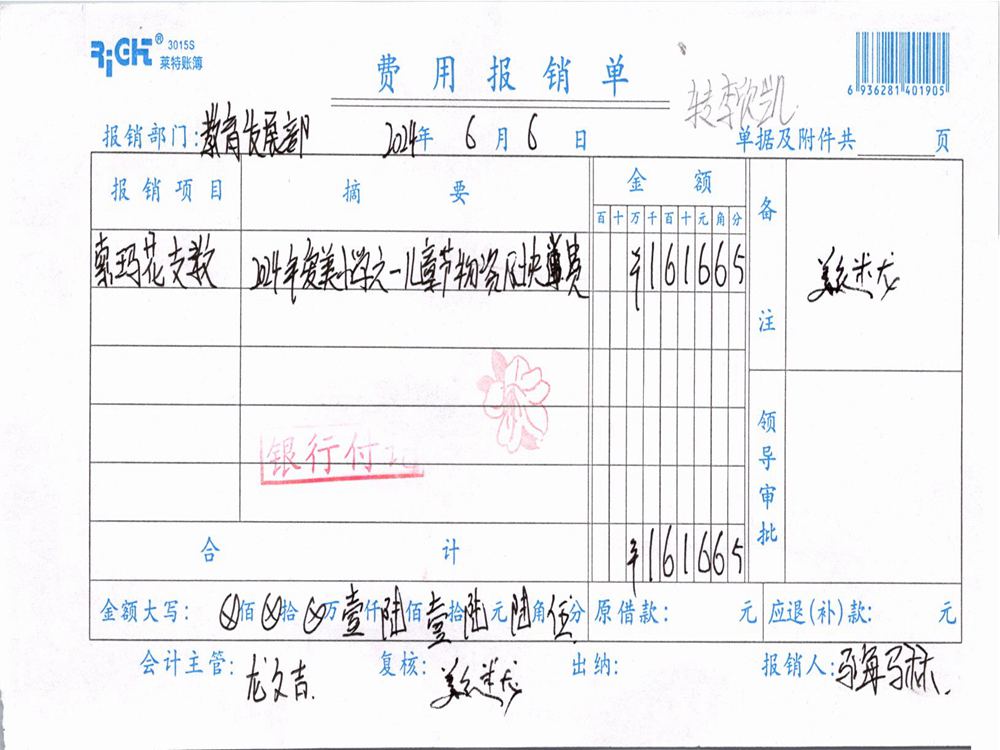 RIGHT® 3015S
莱特账簿
费用报销单
6 936281 401905
转李欣凯
报销部门:教育发展部 2024年6月6日 单据及附件共 页
报销项目 摘要 金额 备注
百十万千百十元角分
索玛花支教 2024年度美小学六一儿童节物资及快递费 ¥161665
银行付
领导审批
合计 ¥161665
金额大写:⊗佰⊗拾⊗万壹仟陆佰壹拾陆元陆角伍分 原借款: 元 应退(补)款: 元
会计主管:龙文吉 复核: 出纳: 报销人:马海马